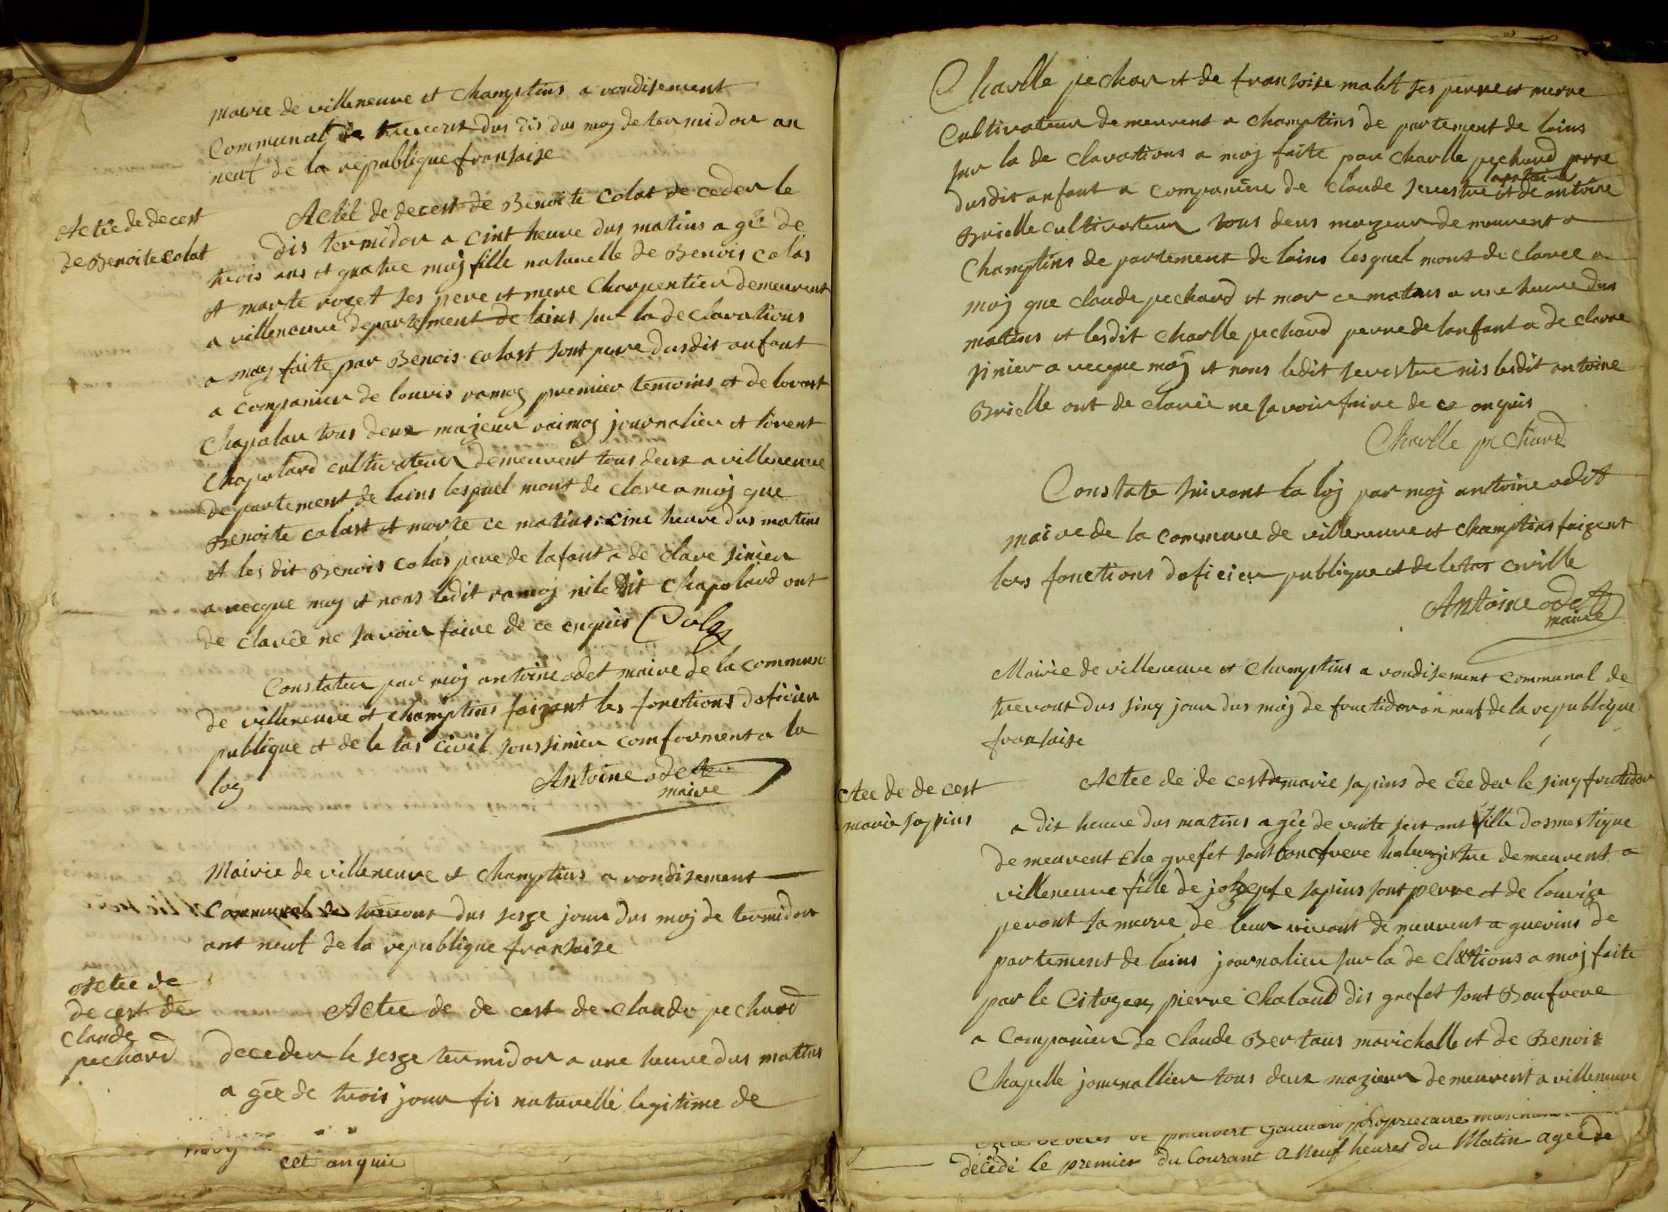 mairie de villeneuve et Champtins a rondisement
Communal de trevous dus dis dus moj de termidor an
neuf de la republique fransaise
Actee de decest
de Benoite colat
Acteé de decest de Benoite Colat de ceder le
dis termidor a cint heure dus matins a gée de
trois ans et quatre moj fille naturelle de Benois colas
et marte roget ses pere et mere Charpentier demeurent
a villeneuve departement de lains sur la de clarations
a moy faite par Benois colast sont pere dusdit anfant
a companier de louvis ramoj premier temoins et de lorent
Chapolar tous deux majeur raimoj journalier et lorent
Chapolard cultivateur demeurent tous deux a villeneuve
departement de lains lesquel mont de clare a moj que
Benoite colast et morte ce matins cinc heure dus matins
et les dit Benois colas pere de lafant a de clare sinier
a vecque moj et nons ledit ramoj ni le dit Chapolard ont
de clarée ne savoir faire de ce enquis Colas
Constater par moj antoine odet maire de la commune
de villeneuve et champtins faisant les fonctions doficier
publique et de le tas civil soussinier comforment a la
loy
Antoine odet
maire
Mairie de villeneuve et Champtins a rondisement
Communal de trevous dus sesze jour dus moj de termidor
ant neuf de la republique fransaise
Actee de
de cest de
Claude
pechard
Actee de de cest de claude pechard
deceder le sesze termidor a une heure dus matins
a gée de trois jour fis naturelle legitime de
cet anquis
Charlle pechar et de fransoise malet ses perre et merre
Cultivateur demeurent a Champtins de partement de lains
sur la de clarations a moj faite par Charlle pechard perre
dusdit anfant a companier de Claude servestre et de antoine
Brielle cultivateur tous deus mazeur demeurent a
Champtins de partement de lains lesquel mont de claree a
moj que Claude pechard et mor ce matins a une heure dus
matins et lesdit Charlle pechard perre de lanfant a de clarre
sinier a vecque moj et nons ledit servestre nis lesdit antoine
Brielle ont de clarée ne savoir faire de ce anquis
Charlle pechard
Constate suivant la loj par moj antoine odet
maire de la commune de villeneuve et champtins faizent
les fonctions doficier publique et de letas civille
Antoine odet
maire
Mairie de villeneuve et Champtins a rondisement communal de
trevous dus sinq jour dus moj de fructidor an neuf de la republique
fransaise
Actee de de cest
marie sapins
Actee de de cest de marie sapins de céeder le sinq fructidor
a dit heure dus matins a gée de vinte sect ant fille dosmestique
demeurent che grefet sont boncfrere demeurent a
villeneuve fille de jozepfe sapins sont perre et de louvize
peront sa merre de leur vivant demeurent a guerins de
partement de lains journalier sur la de clartions a moj faite
par le Citoyen pierre Chaland dis grefet sont Baufrere
a Companier de Claude Bertaus marichalle et de Benois
Chapelle journallier tous deux mazieur demeurent a villeneuve
décédé le premier du Courant a neuf heures du Matin agée de